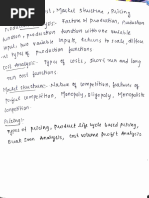 Cost, Market structure, Pricing
Production Analysis:- Factors of Production, Production
function, production function with one variable
input, two variable inputs, Returns to scale, differ
ent types of production functions
Cost Analysis:- Types of costs, Short run and long
run cost functions
Market structures: Nature of competition, features of
perfect competition, Monopoly, oligopoly, Monopolistic
competition.
Pricing:-
Types of pricing, Product life Cycle based pricing,
Break Even Analysis, Cost volume profit Analysis